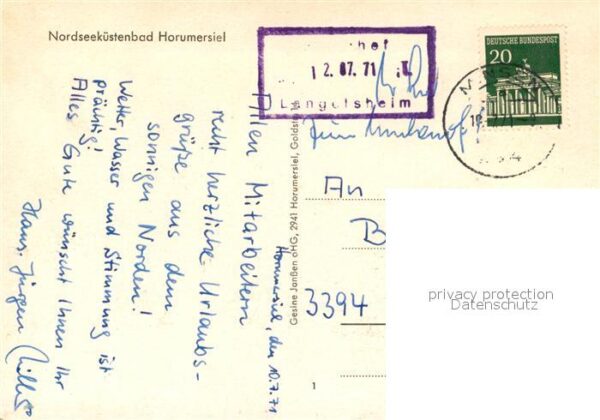 Nordseeküstenbad Horumersiel
hof
12.07.71
Langelsheim
DEUTSCHE BUNDESPOST
20
Gesine Janßen oHG, 2941 Horumersiel, Goldstr.
Horumersiel, den 10.7.71
Allen Mitarbeitern
recht herzliche Urlaubs-
grüße aus dem
sonnigen Norden!
Wetter, Wasser und Stimmung ist
prächtig!
Alles Gute wünscht Ihnen Ihr
Hans-Jürgen
An
B
3394
1
privacy protection
Datenschutz